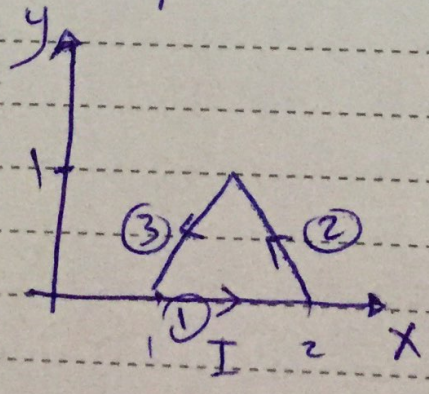 y
1
③ ②
①
1 I 2 X